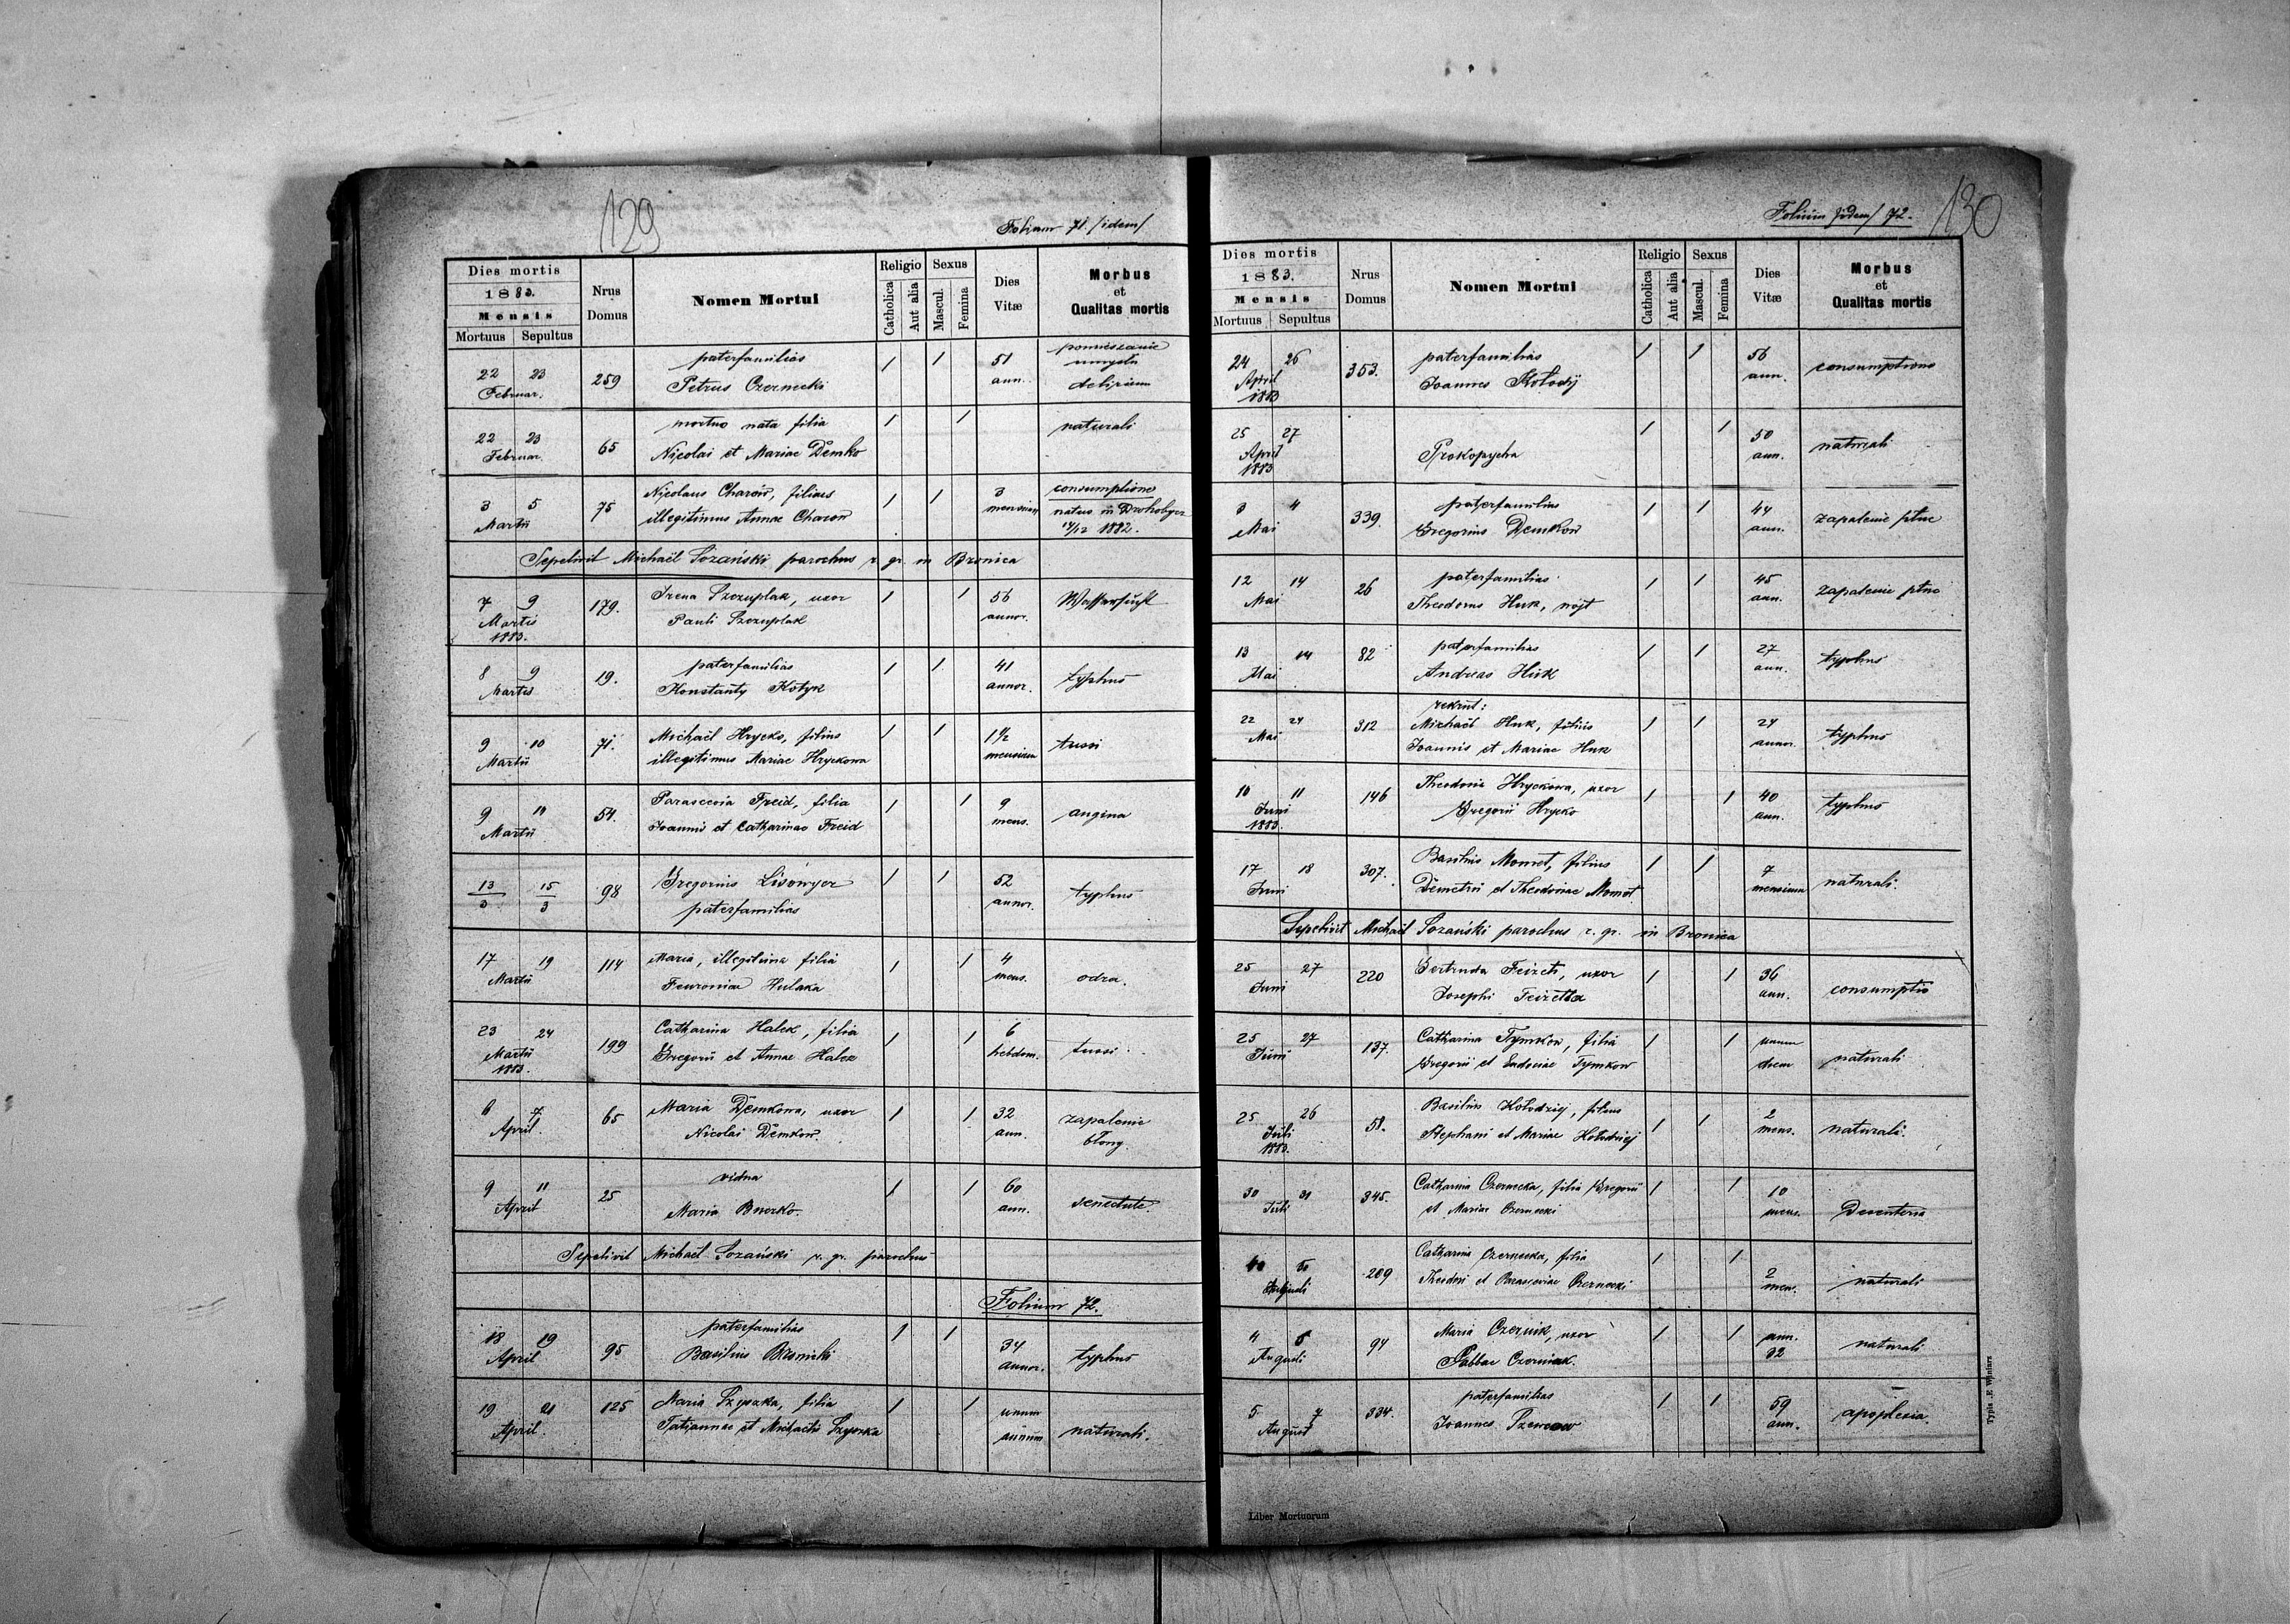 129
Folium 71. /idem/
Dies mortis
1883.
Mensis
Mortuus Sepultus
Nrus
Domus
Nomen Mortui
Religio
Catholica
Aut alia
Sexus
Mascul.
Femina
Dies
Vitæ
Morbus
et
Qualitas mortis
22 23
Februar.
259
paterfamilias
Petrus Czernecki
1 1
51
ann.
pomieszanie
umysłu
delirium
22 23
Februar.
65
mortuo nata filia
Nicolai et Mariae Demko
1 1
naturali
3 5
Martii
75
Nicolaus Charów, filius
illegitimus Annae Charow
1 1
3
mensium
consumptione
natus in Drohobycz
14/12 1882.
Sepelivit Michaël Sozański parochus r. gr. in Bronica
7 9
Martis
1883.
179.
Irena Szczuplak, uxor
Pauli Szczuplak
1 1
56
annor.
Wassersucht
8 9
Martis
19.
paterfamilias
Konstanty Kotyk
1 1
41
annor.
typhus
9 10
Martii
71.
Michaël Hrycko, filius
illegitimus Mariae Hryckowa
1 1
1 1/2
mensium
tussi
9 10
Martii
54.
Parascevia Freid, filia
Joannis et Catharinae Freid
1 1
9
mens.
angina
13/3 15/3
98
Gregorius Lisowyer
paterfamilias
1 1
52
annor.
typhus
17 19
Martii
114
Maria, illegitima filia
Feuroniae Hulaka
1 1
4
mens.
odra.
23 24
Martii
1883.
199
Catharina Halek, filia
Gregorii et Annae Halek
1 1
6
hebdom.
tussi
6 7
April.
65
Maria Demkowa, uxor
Nicolai Demkow.
1 1
32
ann.
zapalenie
błony.
9 11
April
25
vidua
Maria Buczko.
1 1
60
ann.
senectute
Sepelivit Michaël Sozański r. gr. parochus
Folium 72.
18 19
April
95
paterfamilias
Basilius Bronicki
1 1
34
annor.
typhus
19 21
April.
125
Maria Szyszka, filia
Tatiannae et Michaelis Szyszka
1 1
unum
annum
naturali.
Folium /idem/ 72.
130
Dies mortis
1883.
Mensis
Mortuus Sepultus
Nrus
Domus
Nomen Mortui
Religio
Catholica
Aut alia
Sexus
Mascul.
Femina
Dies
Vitæ
Morbus
et
Qualitas mortis
24 26
April
1883
353.
paterfamilias
Joannes Kołodij
1 1
56
ann.
consumptione
25 27
April
1883
Prokopycha
1 1
50
ann.
naturali
3 4
Mai
339.
paterfamilias
Gregorius Demkow
1 1
44
ann.
zapalenie płuc
12 14
Mai
26
paterfamilias
Theodorus Huk, wójt
1 1
45
ann.
zapalenie płuc
13 14
Mai
82
paterfamilias
Andreas Huk
1 1
27
ann.
typhus
22 24
Mai
312
rekrut:
Michaël Huk, filius
Joannis et Mariae Huk
1 1
24
annor.
typhus
10 11
Juni
1883.
146
Theodosia Hryckowa, uxor
Gregorii Hrycko
1 1
40
ann.
typhus
17 18
Juni
307.
Basilius Momot, filius
Demetrii et Theodosiae Momot
1 1
7
mensium
naturali.
Sepelivit Michaël Sozański parochus r. gr. in Bronica
25 27
Juni
220
Gertruda Feizet, uxor
Josephi Feizetta
1 1
36
ann.
consumptio
25 27
Juni
137.
Catharina Tymkow, filia
Gregorii et Eudociae Tymkow
1 1
unum
diem
naturali
25 26
Juli
1883.
51.
Basilius Kołodziej, filius
Stephani et Mariae Kołodziej
1 1
2
mens.
naturali.
30 31
Juli
345.
Catharina Czernecka, filia Gregorii
et Mariae Czernecki
1 1
10
mens.
Desenteria
289
Catharina Czernecka, filia
Theodori et Parasceviae Czernecki
1 1
2
men.
naturali
4 5
Augusti
94
Maria Czernik, uxor
Sabbae Czerniak.
1 1
ann.
32
naturali
5 7
August
334.
paterfamilias
Joannes Szewcow
1 1
59
ann.
apoplexia.
Liber Mortuorum
Typis E. Winiarz